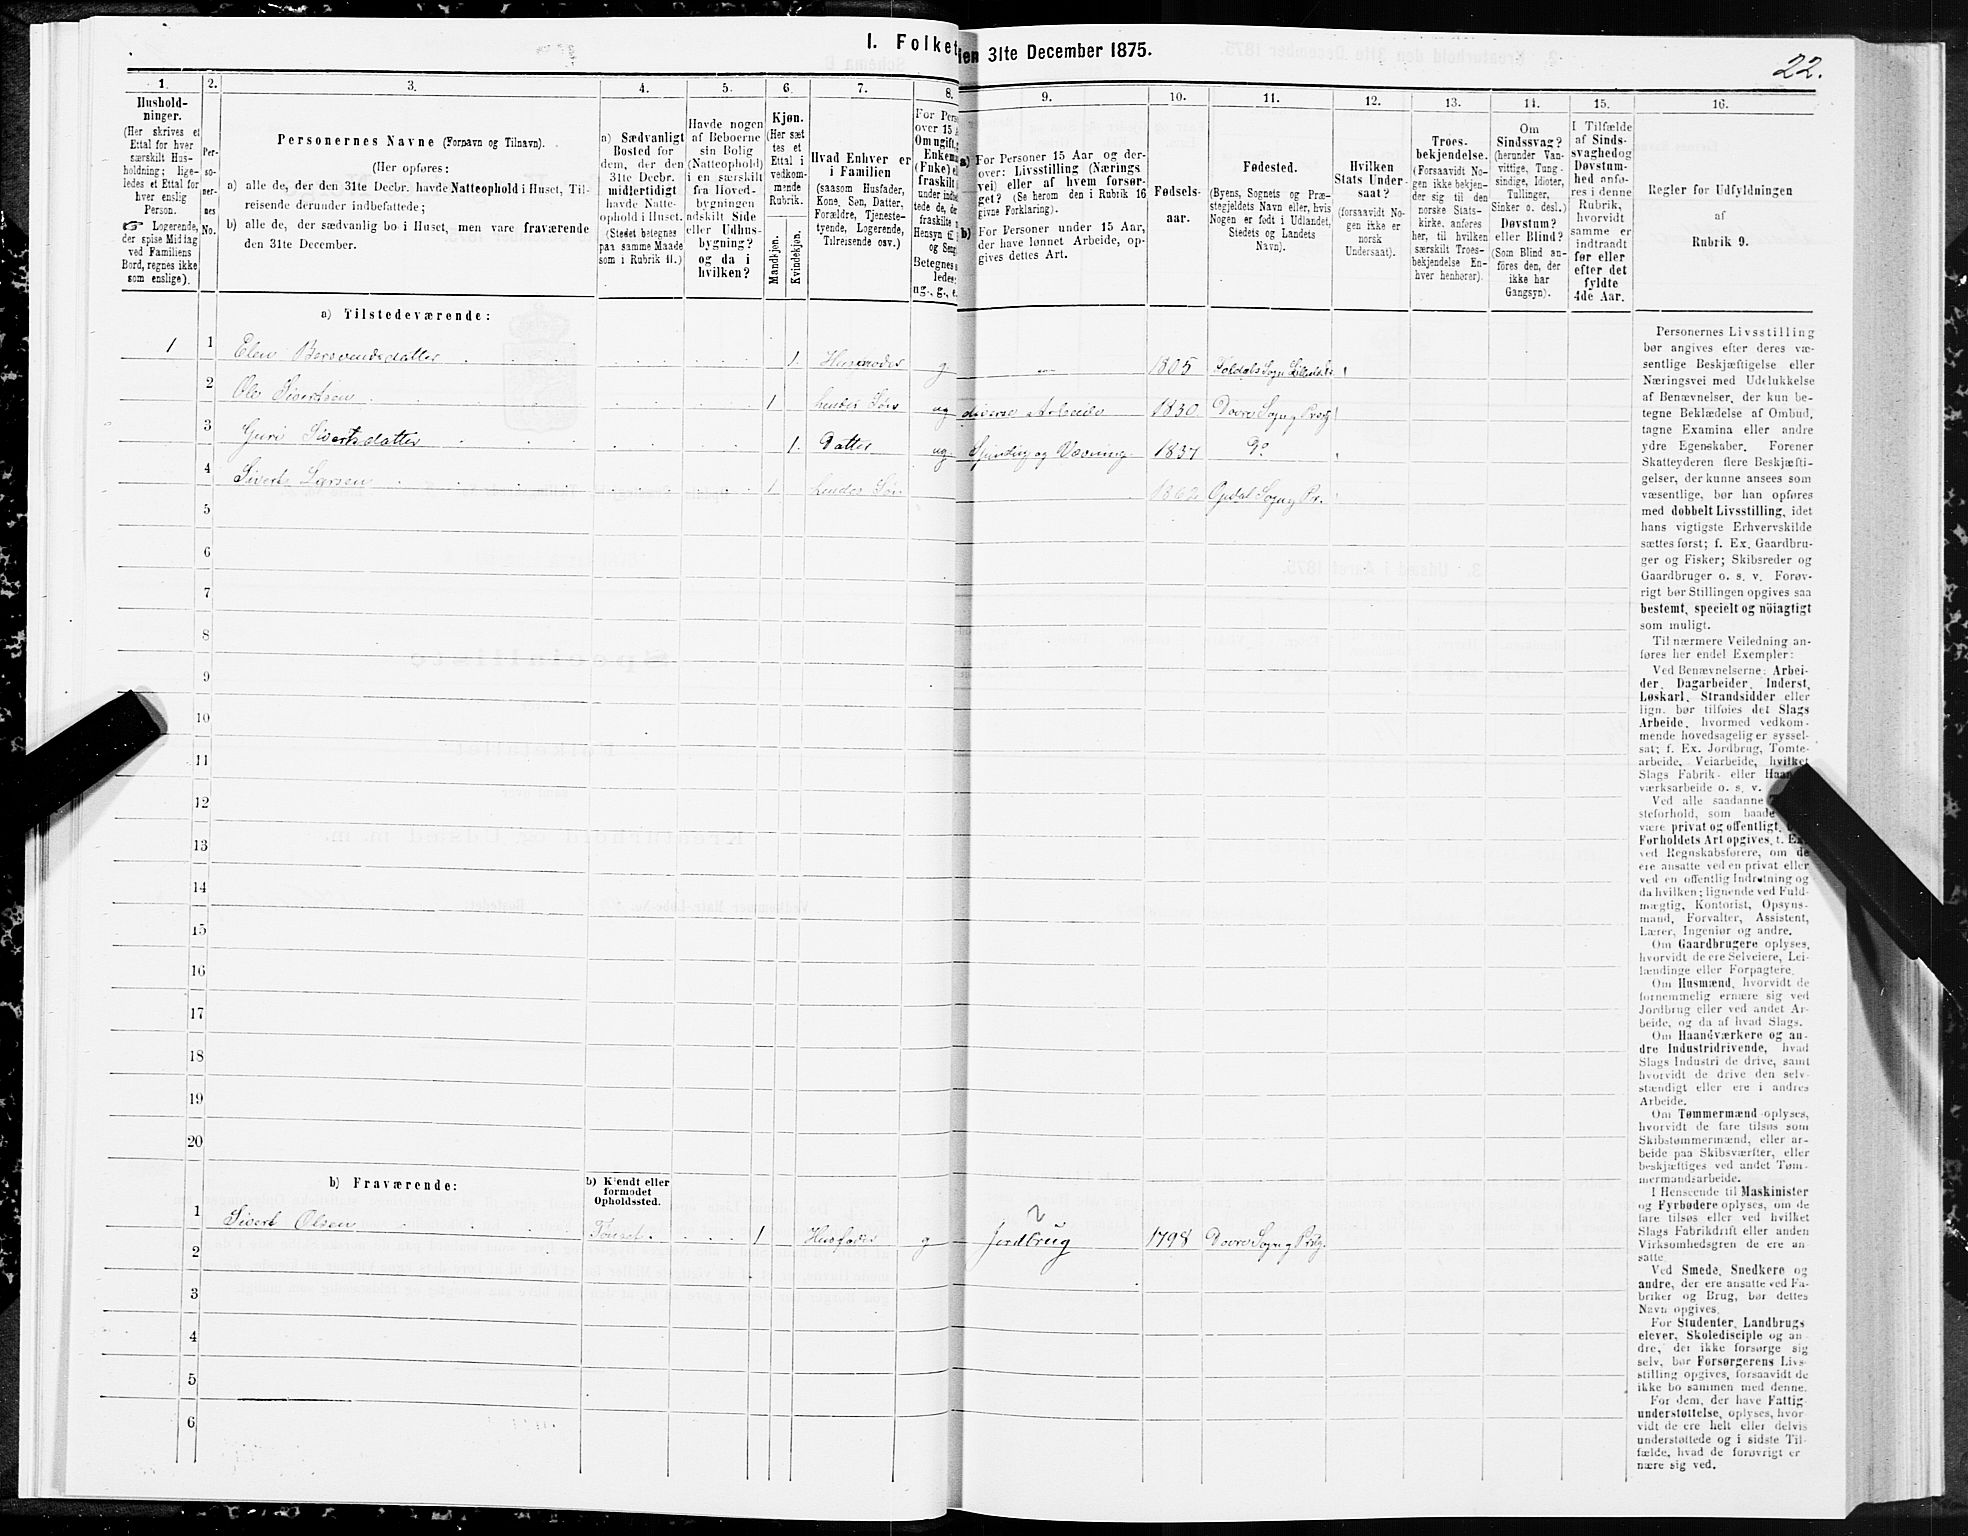 I. Folket
den 31te December 1875.
22.
1. 2. 3. 4. 5. 6. 7. 8. 9. 10. 11. 12. 13. 14. 15. 16.
Hushold-
ninger.
(Her skrives et
Ettal for hver
særskilt Hus-
holdning; lige-
ledes et Ettal for
hver enslig
Person.
☞ Logerende,
der spise Middag
ved Familiens
Bord, regnes ikke
som enslige).
Per-
so-
ner-
nes
No.
Personernes Navne (Fornavn og Tilnavn).
(Her opføres:
a) alle de, der den 31te Decbr. havde Natteophold i Huset, Til-
reisende derunder indbefattede;
b) alle de, der sædvanlig bo i Huset, men vare fraværende
den 31te December.
a) Sædvanligt
Bosted for
dem, der den
31te Decbr.
midlertidigt
havde Natte-
ophold i Huset.
(Stedet betegnes
paa samme Maade
som i Rubrik 11.)
Havde nogen
af Beboerne
sin Bolig
(Natteophold)
i en særskilt
fra Hoved-
bygningen
adskilt Side
eller Udhus-
bygning?
og da i
hvilken?
Kjøn.
(Her sæt
tes et
Ettal i
vedkom-
mende
Rubrik.
Mandkjøn.
Kvindekjøn.
Hvad Enhver er
i Familien
(saasom Husfader,
Kone, Søn, Datter,
Forældre, Tjeneste-
tyende, Logerende,
Tilreisende osv.)
For Pers
over 15 A
Om ugift, g
Enkema
(Fnke) e
fraskilt
under indbe
tede de, de
fraskilte
Hensyn til
og Seng
Betegnes s
ledes:
ug., g., e.
a) For Personer 15 Aar og der-
over: Livsstilling (Nærings
vei) eller af hvem forsør-
get? (Se herom den i Rubrik 16
givne Forklaring).
b) For Personer under 15 Aar,
der have lønnet Arbeide, op-
gives dettes Art.
Fødsels-
aar.
Fødested.
(Byens, Sognets og Præ-
stegjeldets Navn eller, hvis
Nogen er født i Udlandet,
Stedets og Landets
Navn).
Hvilken
Stats Under-
saat?
(forsaavidt No-
gen ikke er
norsk
Undersaat).
Troes-
bekjendelse.
(Forsaavidt No-
gen ikke bekjen-
der sig til den
norske Stats-
kirke, anføres
her, til hvilken
særskilt Troes-
bekjendelse En-
hver henhører).
Om
Sindssvag?
(herunder Van-
vittige, Tung-
sindige, Idioter,
Tullinger,
Sinker o. desl.)
Døvstum?
eller Blind?
(Som Blind an-
føres den, der
ikke har
Gangsyn).
I Tilfælde
af Sinds-
svaghed og
Døvstum-
hed anfø-
res i denne
Rubrik,
hvorvidt
samme er
indtraadt
før eller
efter det
fyldte
4de Aar.
Regler for Udfyldningen
af
Rubrik 9.
a) Tilstedeværende:
1 1 Elen Bersvendsdatter 1. Husmoder g 1805 Foldals Sogn
2 Ole Sivertsen 1 hendes Søn ug diverse Arbeide 1830 Dovre Sogn og Præg
3 Guri Sivertsdatter 1. Datter ug. Spinding og Vævning. 1837 Do
4 Sivert Larsen 1 hendes Søn 1862 Opdal Sogn og Pr.
5
6
7
8
9
10
11
12
13
14
15
16
17
18
19
20
b) Fraværende:
b) Kjendt eller
formodet
Opholdssted.
1 Sivert Olsen Tønset. 1 Husfader g Jordbrug 1798 Dovre Sogn og Præg.
2
3
4
5
6
Personernes Livsstilling
bør angives efter deres væ-
sentlige Beskjæftigelse eller
Næringsvei med Udelukkelse
af Benævnelser, der kun be-
tegne Beklædelse af Ombud,
tagne Examina eller andre
ydre Egenskaber. Forener
Skatteyderen flere Beskjæfti-
gelser, der kunne ansees som
væsentlige, bør han opføres
med dobbelt Livsstilling, idet
hans vigtigste Erhvervskilde
sættes først; f. Ex. Gaardbru-
ger og Fisker; Skibsreder og
Gaardbruger o. s. v. Forøv-
rigt bør Stillingen opgives saa
bestemt, specielt og nöiagtigt
som muligt.
Til nærmere Veiledning an-
føres her endel Exempler:
Ved Benævnelserne: Arbei-
der, Dagarbeider, Inderst,
Løskarl, Strandsidder eller
lign. bør tilføies det Slags
Arbeide, hvormed vedkom-
mende hovedsagelig er syssel-
sat; f. Ex. Jordbrug, Tomte-
arbeide, Veiarbeide, hvilket
Slags Fabrik- eller Haand-
værksarbeide o. s. v.
Ved alle saadanne
steforhold, som baade
være privat og offentligt,
Forholdets Art opgives, t. Ex.
ved Regnskabsførere, om de
ere ansatte ved en privat eller
ved en offentlig Indretning og
da hvilken; lignende ved Fuld-
mægtig, Kontorist, Opsyns-
mand, Forvalter, Assistent,
Lærer, Ingeniør og andre.
Om Gaardbrugere oplyses,
hvorvidt de ere Selveiere, Lei-
lændinge eller Forpagtere.
Om Husmænd, hvorvidt de
fornemmelig ernære sig ved
Jordbrug eller ved andet Ar-
beide, og da af hvad Slags.
Om Haandværkere og an-
dre Industridrivende, hvad
Slags Industri de drive, samt
hvorvidt de drive den selv-
stændigt eller ere i andres
Arbeide.
Om Tømmermænd oplyses,
hvorvidt de fare tilsøs som
Skibstømmermænd, eller ar-
beide paa Skibsværfter, eller
beskjæftiges ved andet Tøm-
mermandsarbeide.
I Henseende til Maskinister
og Fyrbødere oplyses, om de
fare tilsøs eller ved hvilket
Slags Fabrikdrift eller anden
Virksomhedsgren de ere an-
satte.
Ved Smede, Snedkere og
andre, der ere ansatte ved Fa-
briker og Brug, bør dettes
Navn opgives.
For Studenter, Landbrugs
elever, Skoledisciple og an-
dre, der ikke forsørge sig
selv, bør Forsørgerens Livs-
stilling opgives, forsaavidt de
ikke bo sammen med denne.
For dem, der have Fattig-
understøttelse, oplyses, hvor-
vidt de ere helt eller delvis
understøttede og i sidste Til-
fælde, hvad de forøvrigt er
nære sig ved.